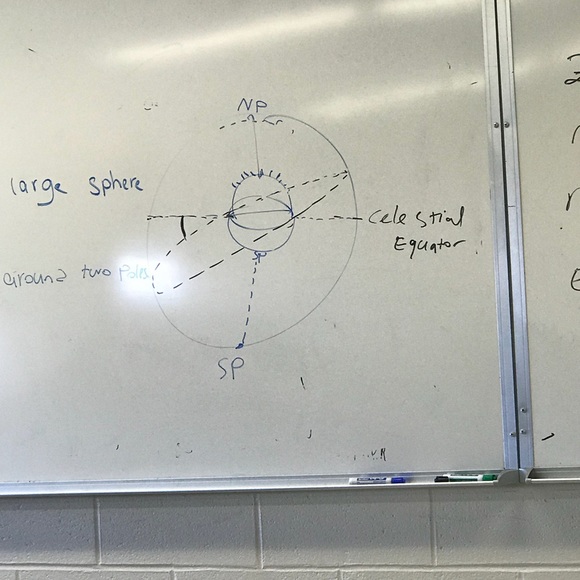 NP
large sphere
Celestial
Equator
around two Poles
SP